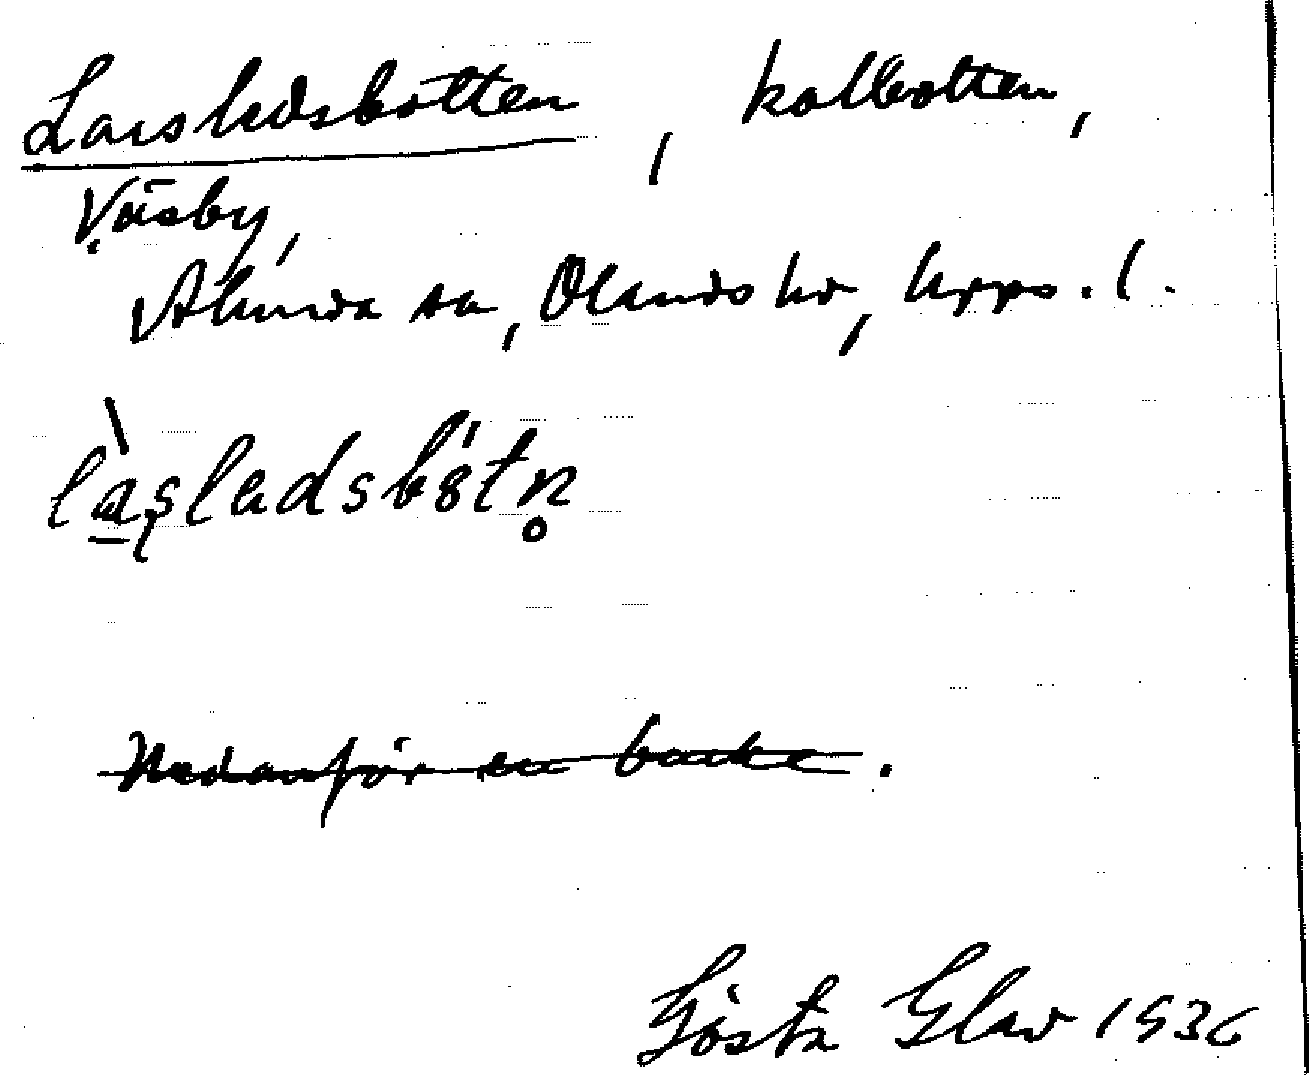 Larsledsbotten, kolbotten,
Väsby,
Almunda sn, Olands hd, Upps. l.
làșledsbótn̥
Nedanför en backe.
Gösta Glad 1936